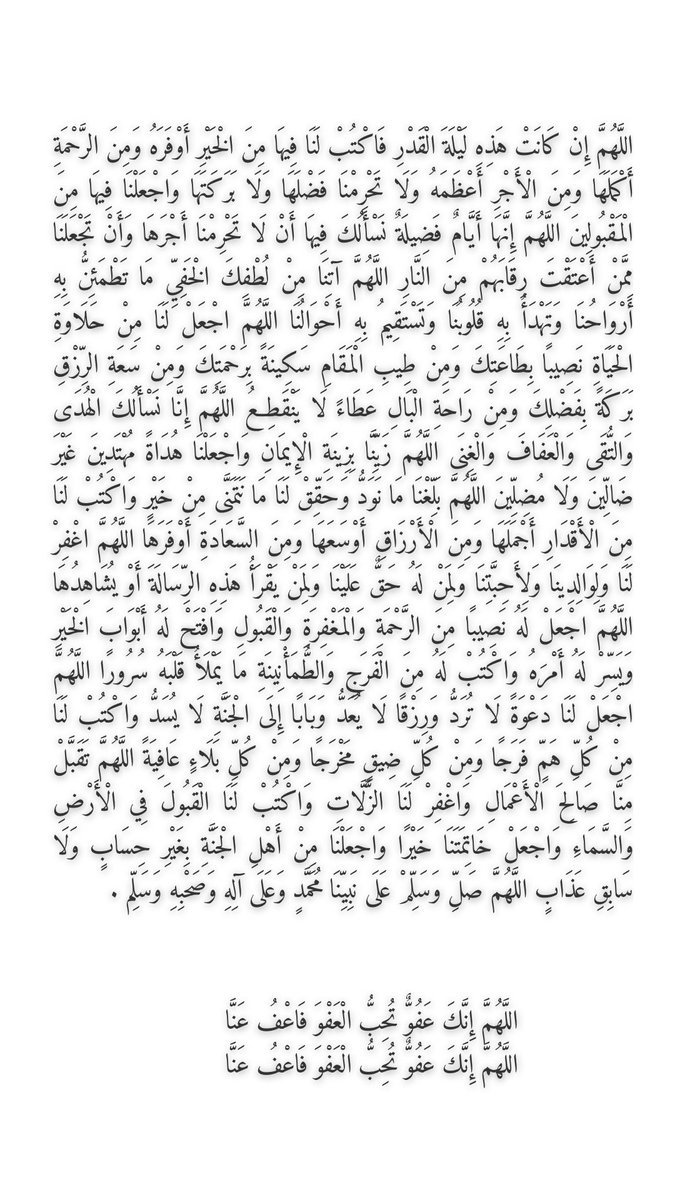 اللَّهُمَّ إِنْ كَانَتْ هَذِهِ لَيْلَةَ الْقَدْرِ فَاكْتُبْ لَنَا فِيهَا مِنَ الْخَيْرِ أَوْفَرَهُ وَمِنَ الرَّحْمَةِ
أَكْمَلَهَا وَمِنَ الْأَجْرِ أَعْظَمَهُ وَلَا تَحْرِمْنَا فَضْلَهَا وَلَا بَرَكَتَهَا وَاجْعَلْنَا فِيهَا مِنَ
الْمَقْبُولِينَ اللَّهُمَّ إِنَّهَا أَيَّامٌ فَضِيلَةٌ نَسْأَلُكَ فِيهَا أَنْ لَا تَحْرِمْنَا أَجْرَهَا وَأَنْ تَجْعَلَنَا
مِمَّنْ أَعْتَقْتَ رِقَابَهُمْ مِنَ النَّارِ اللَّهُمَّ آتِنَا مِنْ لُطْفِكَ الْخَفِيِّ مَا تَطْمَئِنُّ بِهِ
أَرْوَاحُنَا وَتَهْدَأُ بِهِ قُلُوبُنَا وَتَسْتَقِيمُ بِهِ أَحْوَالُنَا اللَّهُمَّ اجْعَلْ لَنَا مِنْ حَلَاوَةِ
الْحَيَاةِ نَصِيبًا بِطَاعَتِكَ وَمِنْ طِيبِ الْمَقَامِ سَكِينَةً بِرَحْمَتِكَ وَمِنْ سَعَةِ الرِّزْقِ
بَرَكَةً بِفَضْلِكَ وَمِنْ رَاحَةِ الْبَالِ عَطَاءً لَا يَنْقَطِعُ اللَّهُمَّ إِنَّا نَسْأَلُكَ الْهُدَى
وَالتُّقَى وَالْعَفَافَ وَالْغِنَى اللَّهُمَّ زَيِّنَّا بِزِينَةِ الْإِيمَانِ وَاجْعَلْنَا هُدَاةً مُهْتَدِينَ غَيْرَ
ضَالِّينَ وَلَا مُضِلِّينَ اللَّهُمَّ بَلِّغْنَا مَا نَوَدُّ وَحَقِّقْ لَنَا مَا نَتَمَنَّى مِنْ خَيْرٍ وَاكْتُبْ لَنَا
مِنَ الْأَقْدَارِ أَجْمَلَهَا وَمِنَ الْأَرْزَاقِ أَوْسَعَهَا وَمِنَ السَّعَادَةِ أَوْفَرَهَا اللَّهُمَّ اغْفِرْ
لَنَا وَلِوَالِدِينَا وَلِأَحِبَّتِنَا وَلِمَنْ لَهُ حَقٌّ عَلَيْنَا وَلِمَنْ يَقْرَأُ هَذِهِ الرِّسَالَةَ أَوْ يُشَاهِدُهَا
اللَّهُمَّ اجْعَلْ لَهُ نَصِيبًا مِنَ الرَّحْمَةِ وَالْمَغْفِرَةِ وَالْقَبُولِ وَافْتَحْ لَهُ أَبْوَابَ الْخَيْرِ
وَيَسِّرْ لَهُ أَمْرَهُ وَاكْتُبْ لَهُ مِنَ الْفَرَجِ وَالطُّمَأْنِينَةِ مَا يَمْلَأُ قَلْبَهُ سُرُورًا اللَّهُمَّ
اجْعَلْ لَنَا دَعْوَةً لَا تُرَدُّ وَرِزْقًا لَا يُعَدُّ وَبَابًا إِلَى الْجَنَّةِ لَا يُسَدُّ وَاكْتُبْ لَنَا
مِنْ كُلِّ هَمٍّ فَرَجًا وَمِنْ كُلِّ ضِيقٍ مَخْرَجًا وَمِنْ كُلِّ بَلَاءٍ عَافِيَةً اللَّهُمَّ تَقَبَّلْ
مِنَّا صَالِحَ الْأَعْمَالِ وَاغْفِرْ لَنَا الزَّلَّاتِ وَاكْتُبْ لَنَا الْقَبُولَ فِي الْأَرْضِ
وَالسَّمَاءِ وَاجْعَلْ خَاتِمَتَنَا خَيْرًا وَاجْعَلْنَا مِنْ أَهْلِ الْجَنَّةِ بِغَيْرِ حِسَابٍ وَلَا
سَابِقِ عَذَابٍ اللَّهُمَّ صَلِّ وَسَلِّمْ عَلَى نَبِيِّنَا مُحَمَّدٍ وَعَلَى آلِهِ وَصَحْبِهِ وَسَلِّم .
اللَّهُمَّ إِنَّكَ عَفُوٌّ تُحِبُّ الْعَفْوَ فَاعْفُ عَنَّا
اللَّهُمَّ إِنَّكَ عَفُوٌّ تُحِبُّ الْعَفْوَ فَاعْفُ عَنَّا